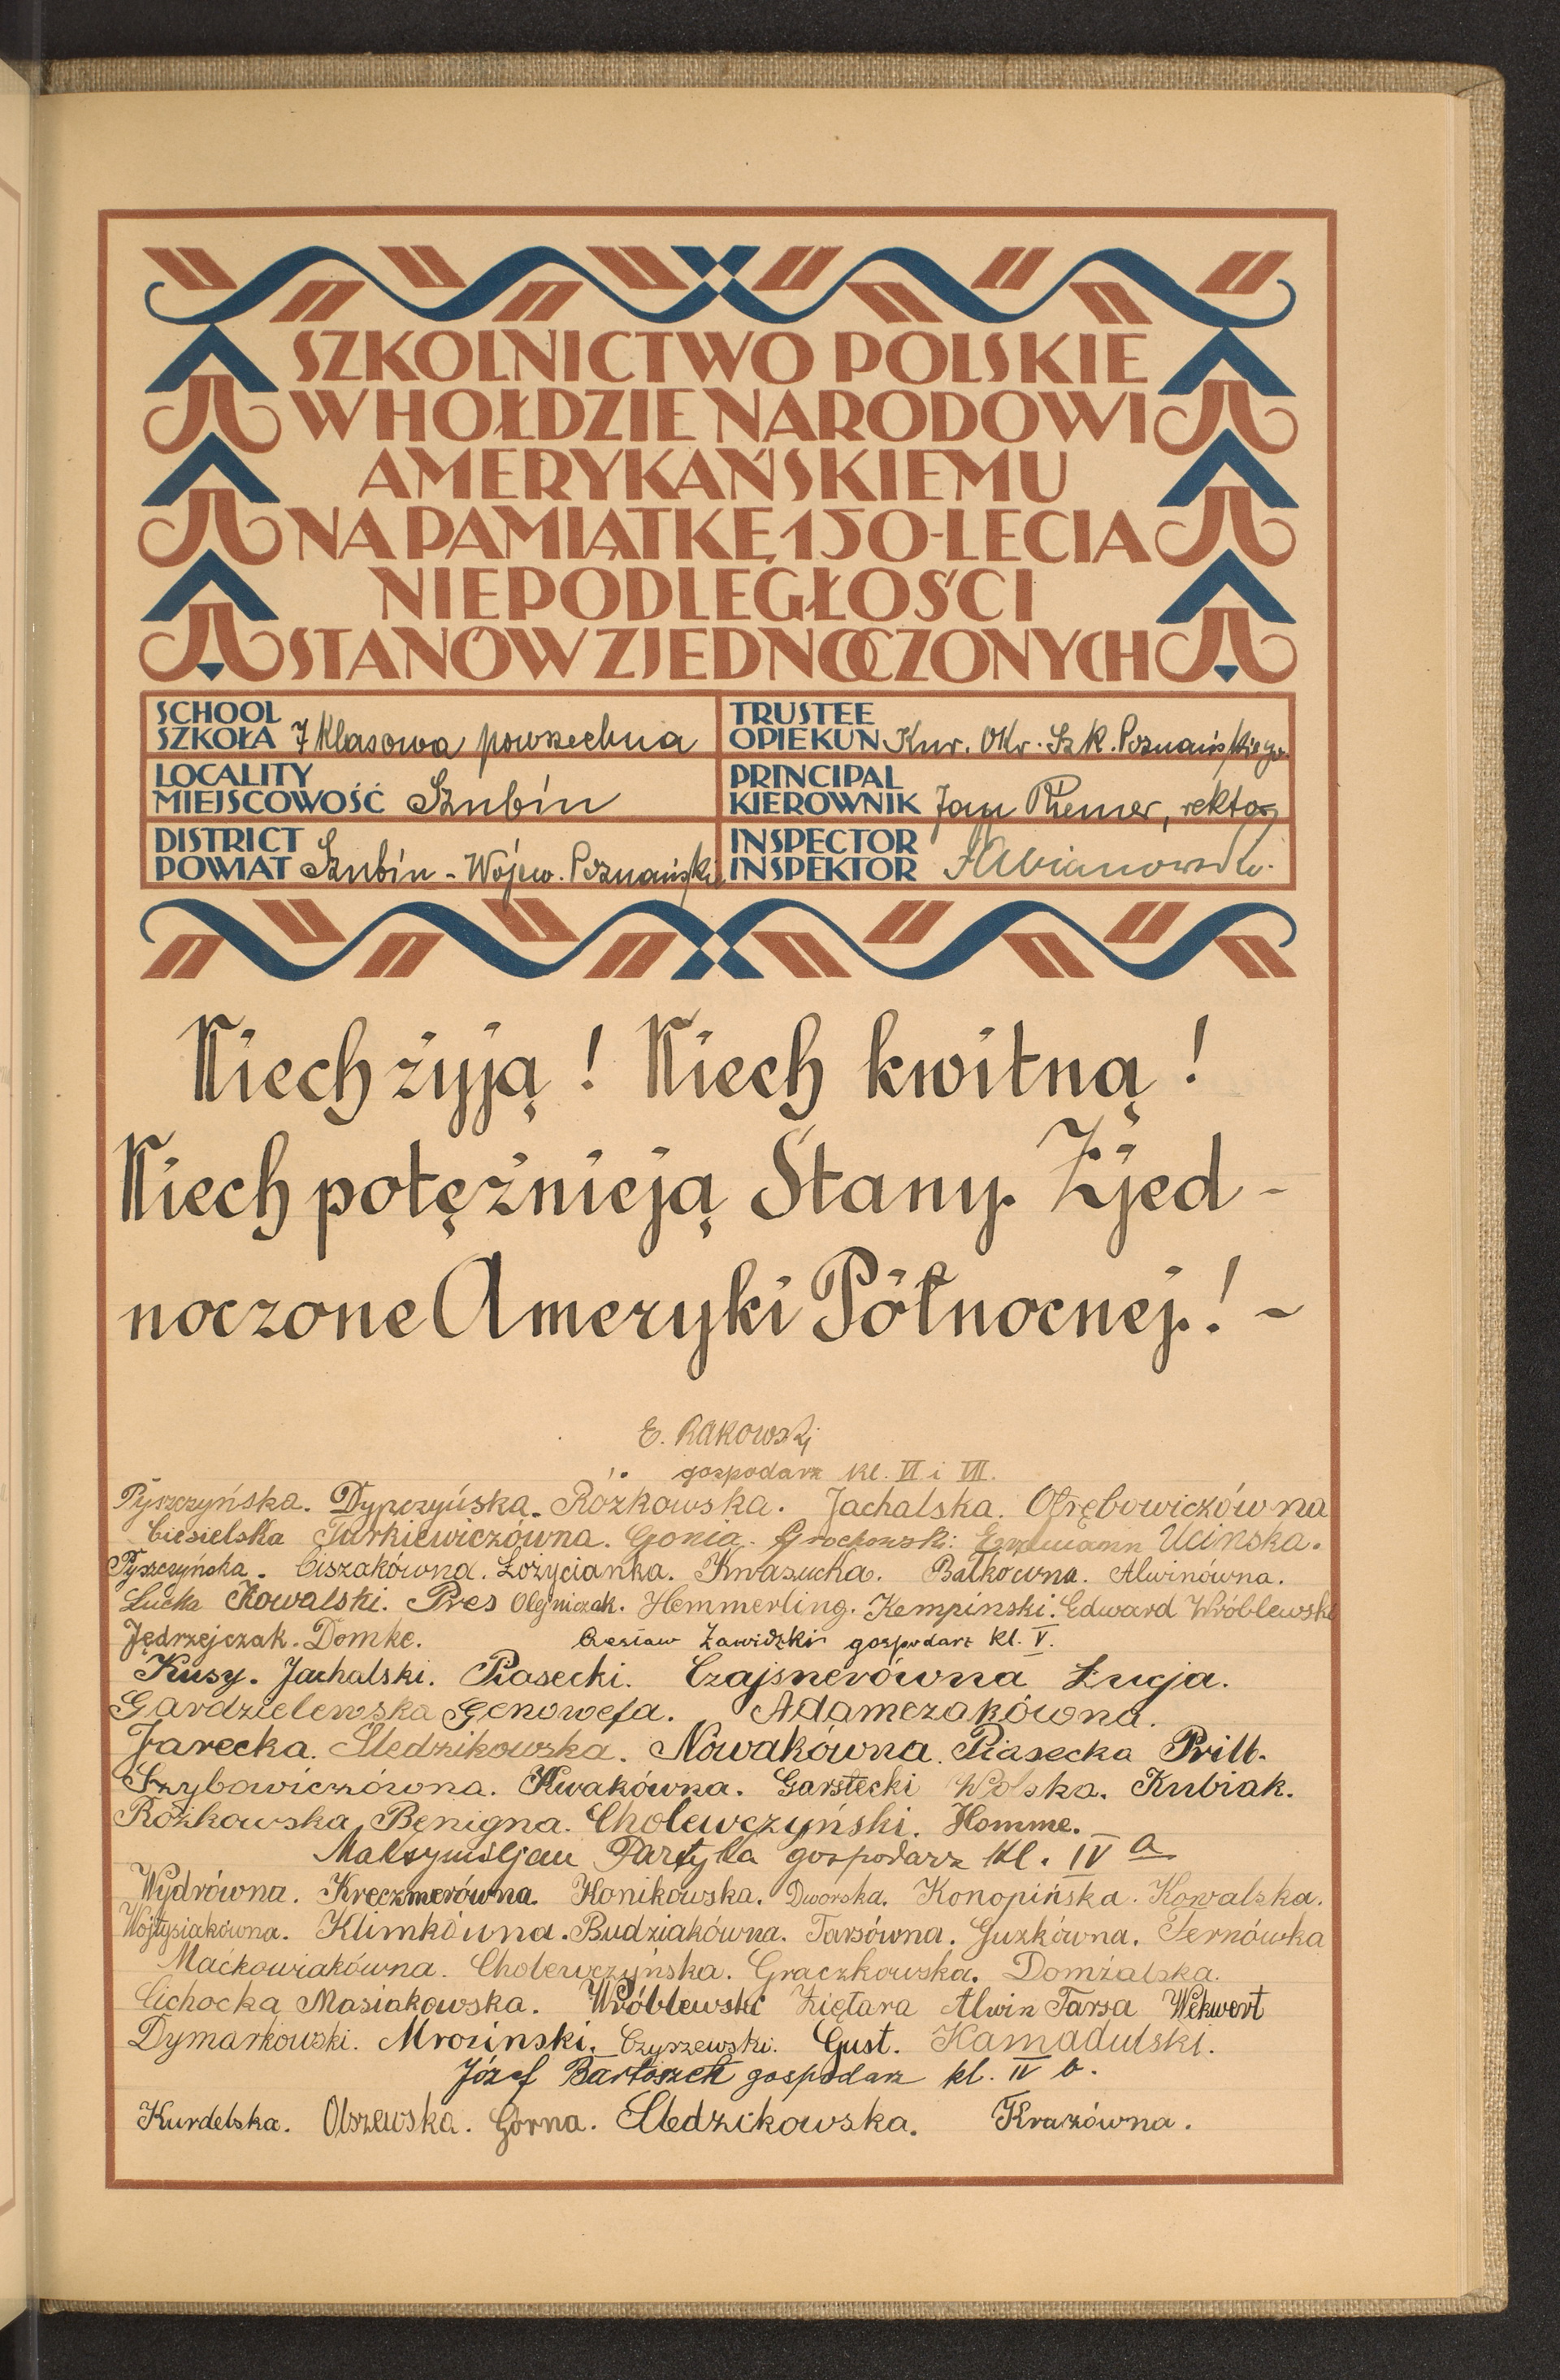 SZKOLNICTWO POLSKIE
W HOŁDZIE NARODOWI
AMERYKAŃSKIEMU
NA PAMIĄTKĘ 150-LECIA
NIEPODLEGŁOŚCI
STANÓW ZJEDNOCZONYCH
SCHOOL
SZKOŁA 7 klasowa powszechna
TRUSTEE
OPIEKUN Kur. Okr. Szk. Poznańskiego
LOCALITY
MIEJSCOWOŚĆ Szubin
PRINCIPAL
KIEROWNIK Jan Riemer, rektor
DISTRICT
POWIAT Szubin - Wojew. Poznańskie
INSPECTOR
INSPEKTOR
Niech żyją! Niech kwitną!
Niech potężnieją Stany Zjed-
noczone Ameryki Północnej! -
E. Rakowski
gospodarz kl. VI i VII.
Pyszczyńska. Dypczyńska. Rozkowska. Jachalska. Otrębowiczówna
Ciesielska Turkiewiczówna. Gonia. Grochowski. Ucinska.
Pyszczyńska. Ciszakówna. Łożycianka. Kwasucka. Balkowna. Alwinówna.
Lucka Kowalski. Pres Olejniczak. Hemmerling. Kempinski. Edward Wróblewski
Jędrzejczak. Domke. Czesław Zawidzki gospodarz kl. V.
Kusy. Jachalski. Piasecki. Czajsnerówna Łucja.
Gardzielewska Genowefa. Adamczakówna.
Jarecka. Śledzikowska. Nowakówna. Piasecka Prill.
Szybowiczówna. Kwakówna. Garstecki Wolska. Kubiak.
Rożkowska Benigna. Cholewczyński. Homme.
Maksymiljan Partyka gospodarz kl. IV a
Wydrówna. Kreczmerówna. Honikowska. Dworska. Konopińska. Kowalska.
Wojtysiakówna. Klimkówna. Budziakówna. Tarsówna. Guzkówna. Fernówka
Maćkowiakówna. Cholewczyńska. Graczkowska. Domżalska.
Cichocka Masiakowska. Wróblewski Ziętara Alwin Tarsa Wekwert
Dymarkowski. Mrozinski. Czyszewski. Gust. Kamadulski.
Józef Bartoszek gospodarz kl. IV b.
Kurdelska. Olszewska. Górna. Śledzikowska. Krazówna.